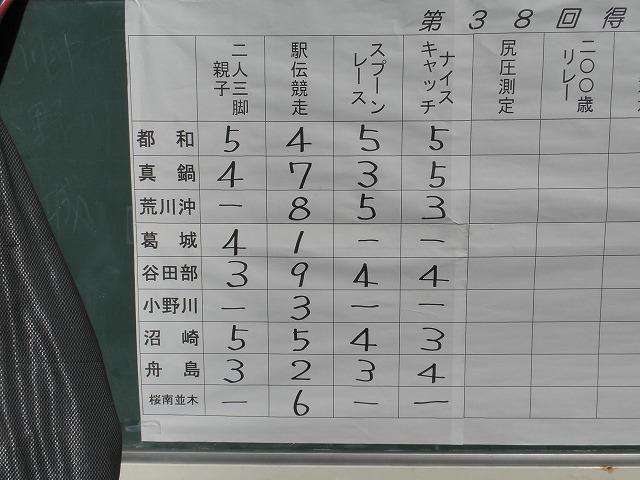 第38回得
親子二人三脚 駅伝競走 スプーンレース ナイスキャッチ 尻圧測定 二〇〇歳リレー
都和 5 4 5 5
真鍋 4 7 3 5
荒川沖 — 8 5 3
葛城 4 1 — —
谷田部 3 9 4 4
小野川 — 3 — —
沼崎 5 5 4 3
舟島 3 2 3 4
桜南並木 — 6 — —